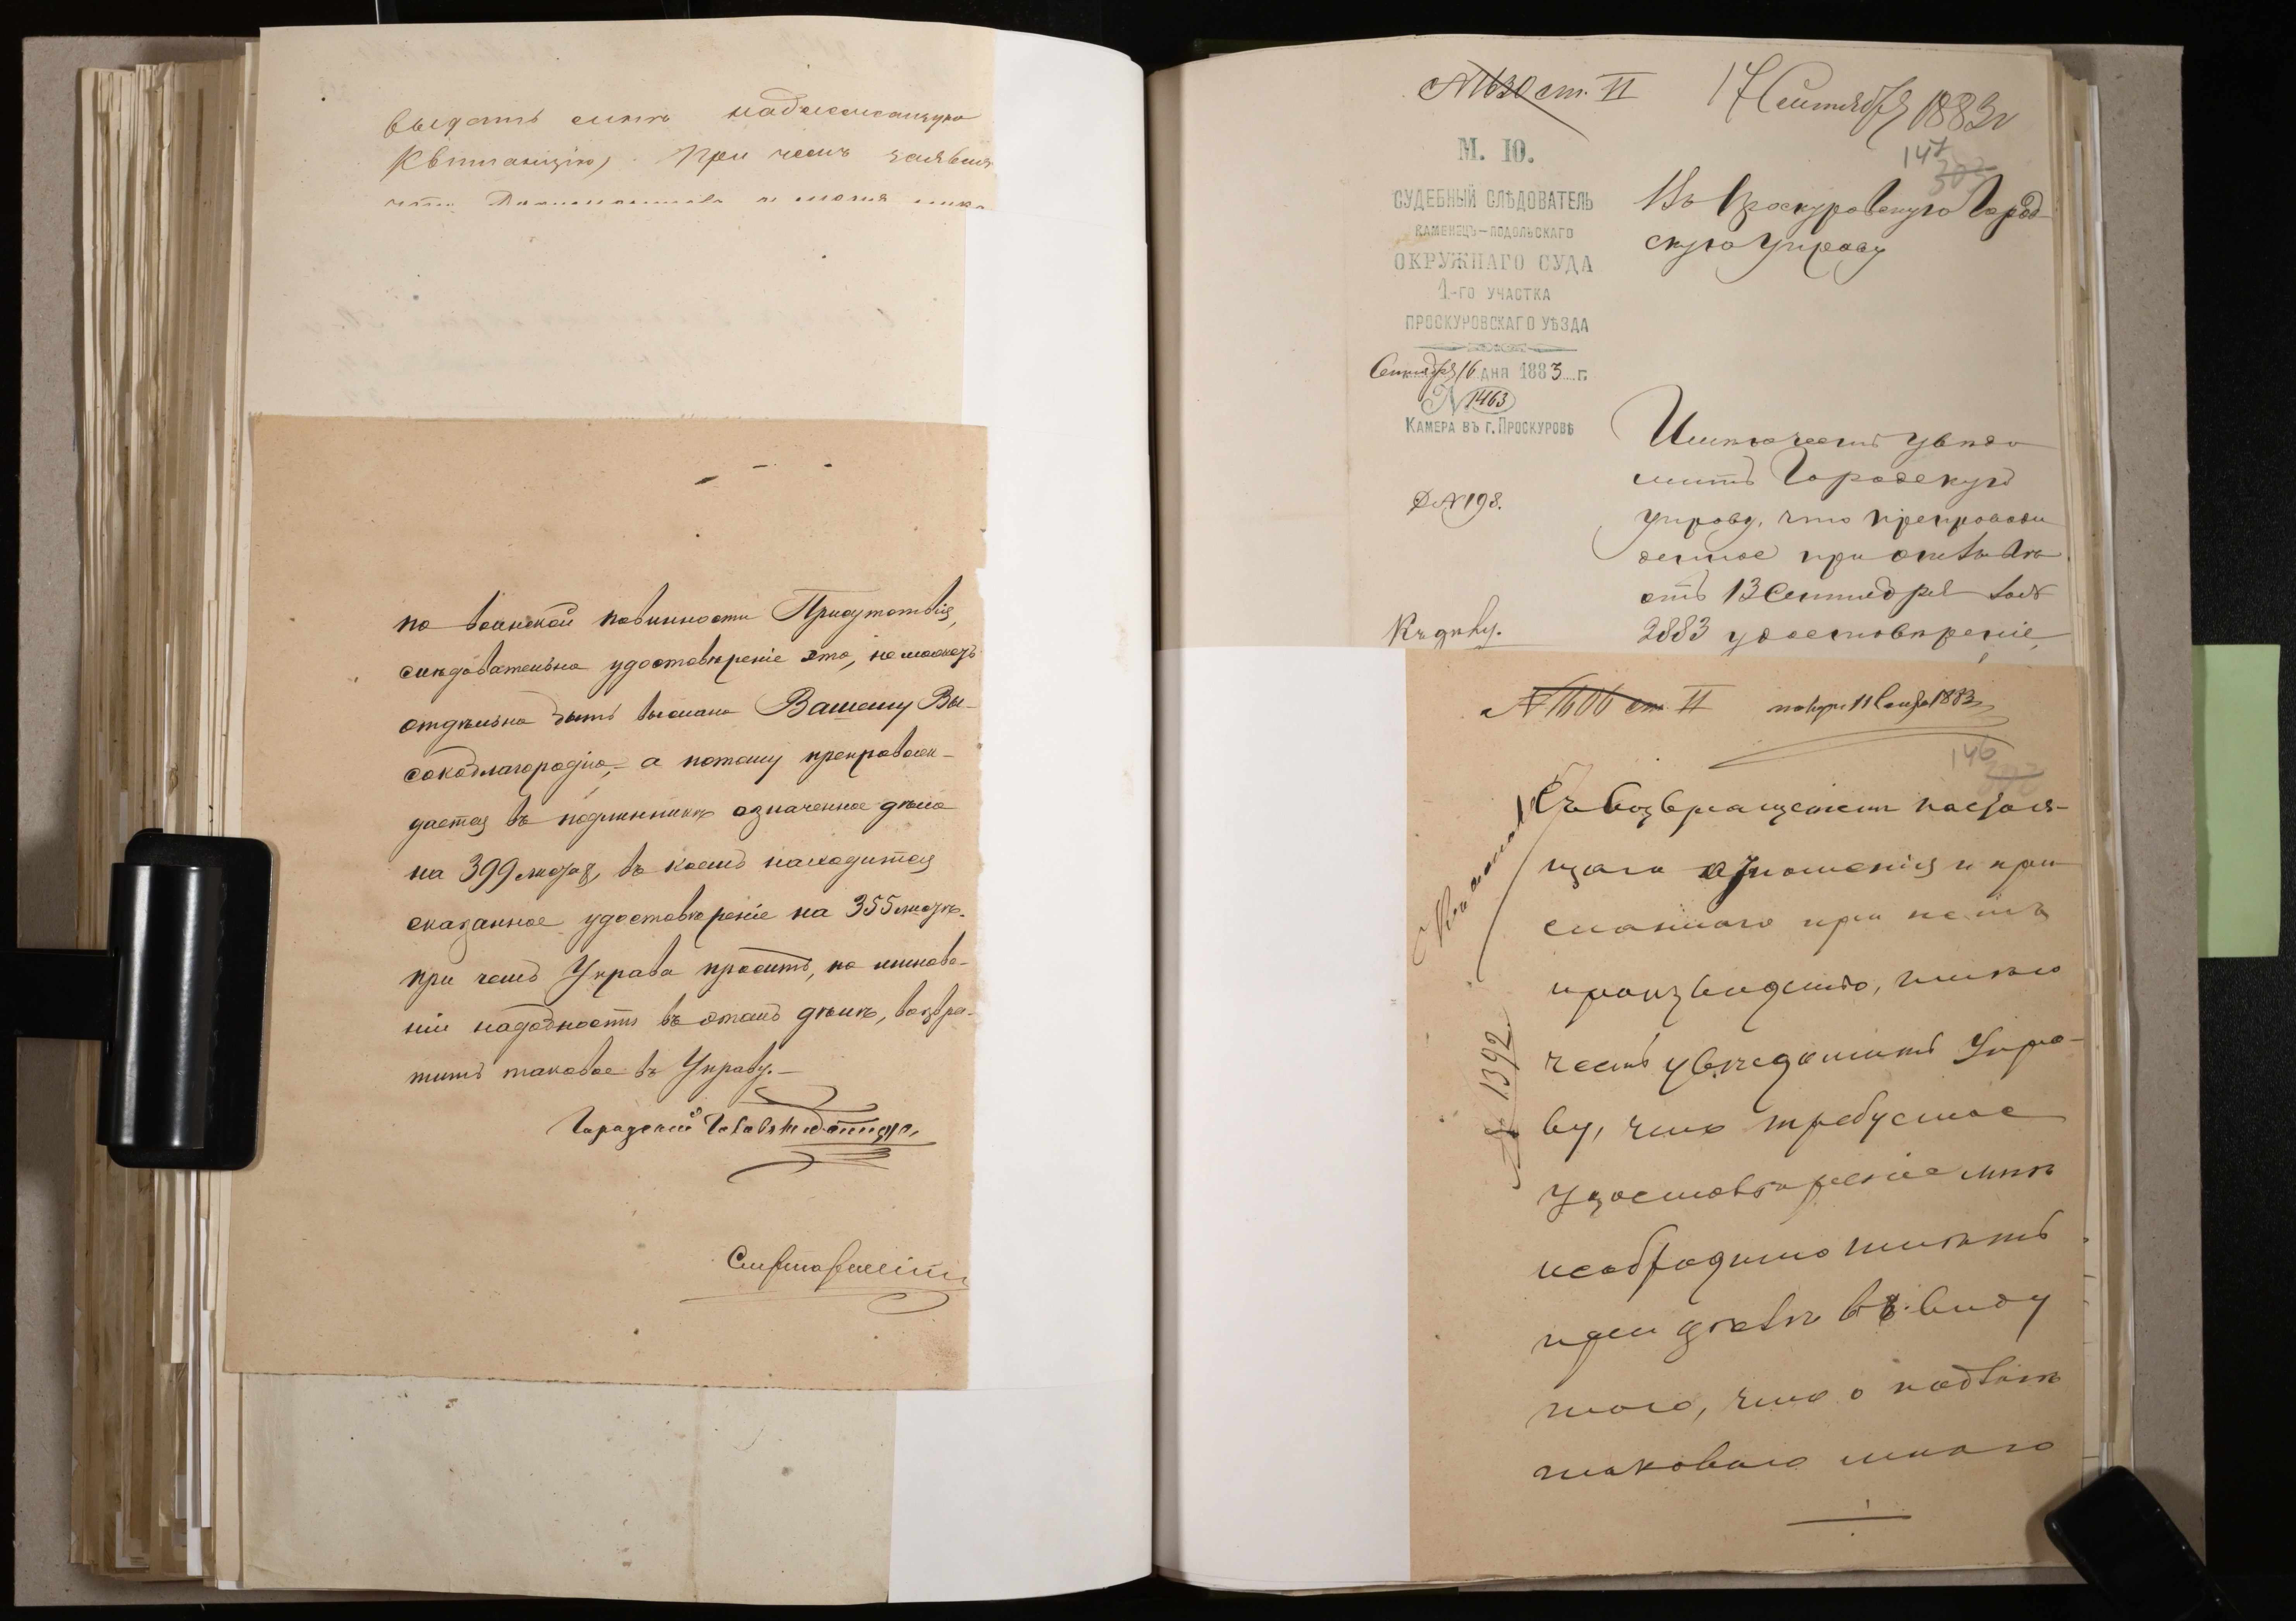 выдать мнѣ надлежащую
квитанцію, при чемъ заявляю
по воинской повинности Присутствія,
слѣдовательно удостовѣреніе это, не можетъ
отдѣльно быть выслано Вашему Вы-
сокоблагородію,- а потому препровож-
дается въ подлинникѣ означенное дѣло
на 399 листах, въ коемъ находится
сказанное удостовѣреніе на 355 листѣ.
при чемъ Управа проситъ, по минова-
ніи надобности въ этомъ дѣлѣ, возвра-
тить таковое въ Управу.-
Городской Голова
Секретарь
№ 1630 ст. II 17 Сентября 1883 г
147
М. Ю.
СУДЕБНЫЙ СЛѢДОВАТЕЛЬ
КАМЕНЕЦЪ-ПОДОЛЬСКАГО
ОКРУЖНАГО СУДА
1-ГО УЧАСТКА
ПРОСКУРОВСКАГО УѢЗДА
Сентября 16 ДНЯ 1883 г.
№ 1463
КАМЕРА ВЪ Г. ПРОСКУРОВѢ
Въ Проскуровскую Город
скую Управу
Д № 198.
Къ дѣлу.
Имѣю честь увѣдо
мить Городскую
Управу, что препровож
денное при
отъ 13 Сентября за №
2883 удостовѣреніе,
№ 1606 ст. II 11 1883
146
№ 1392.
Съ возвращеніемъ настоя-
щаго отношенія и при
сланнаго при немъ
производства, имѣю
честь увѣдомить Упра-
ву, что требуемое
удостовѣреніе мнѣ
необходимо имѣть
при дѣлѣ въ виду
того, что о
таковаго много